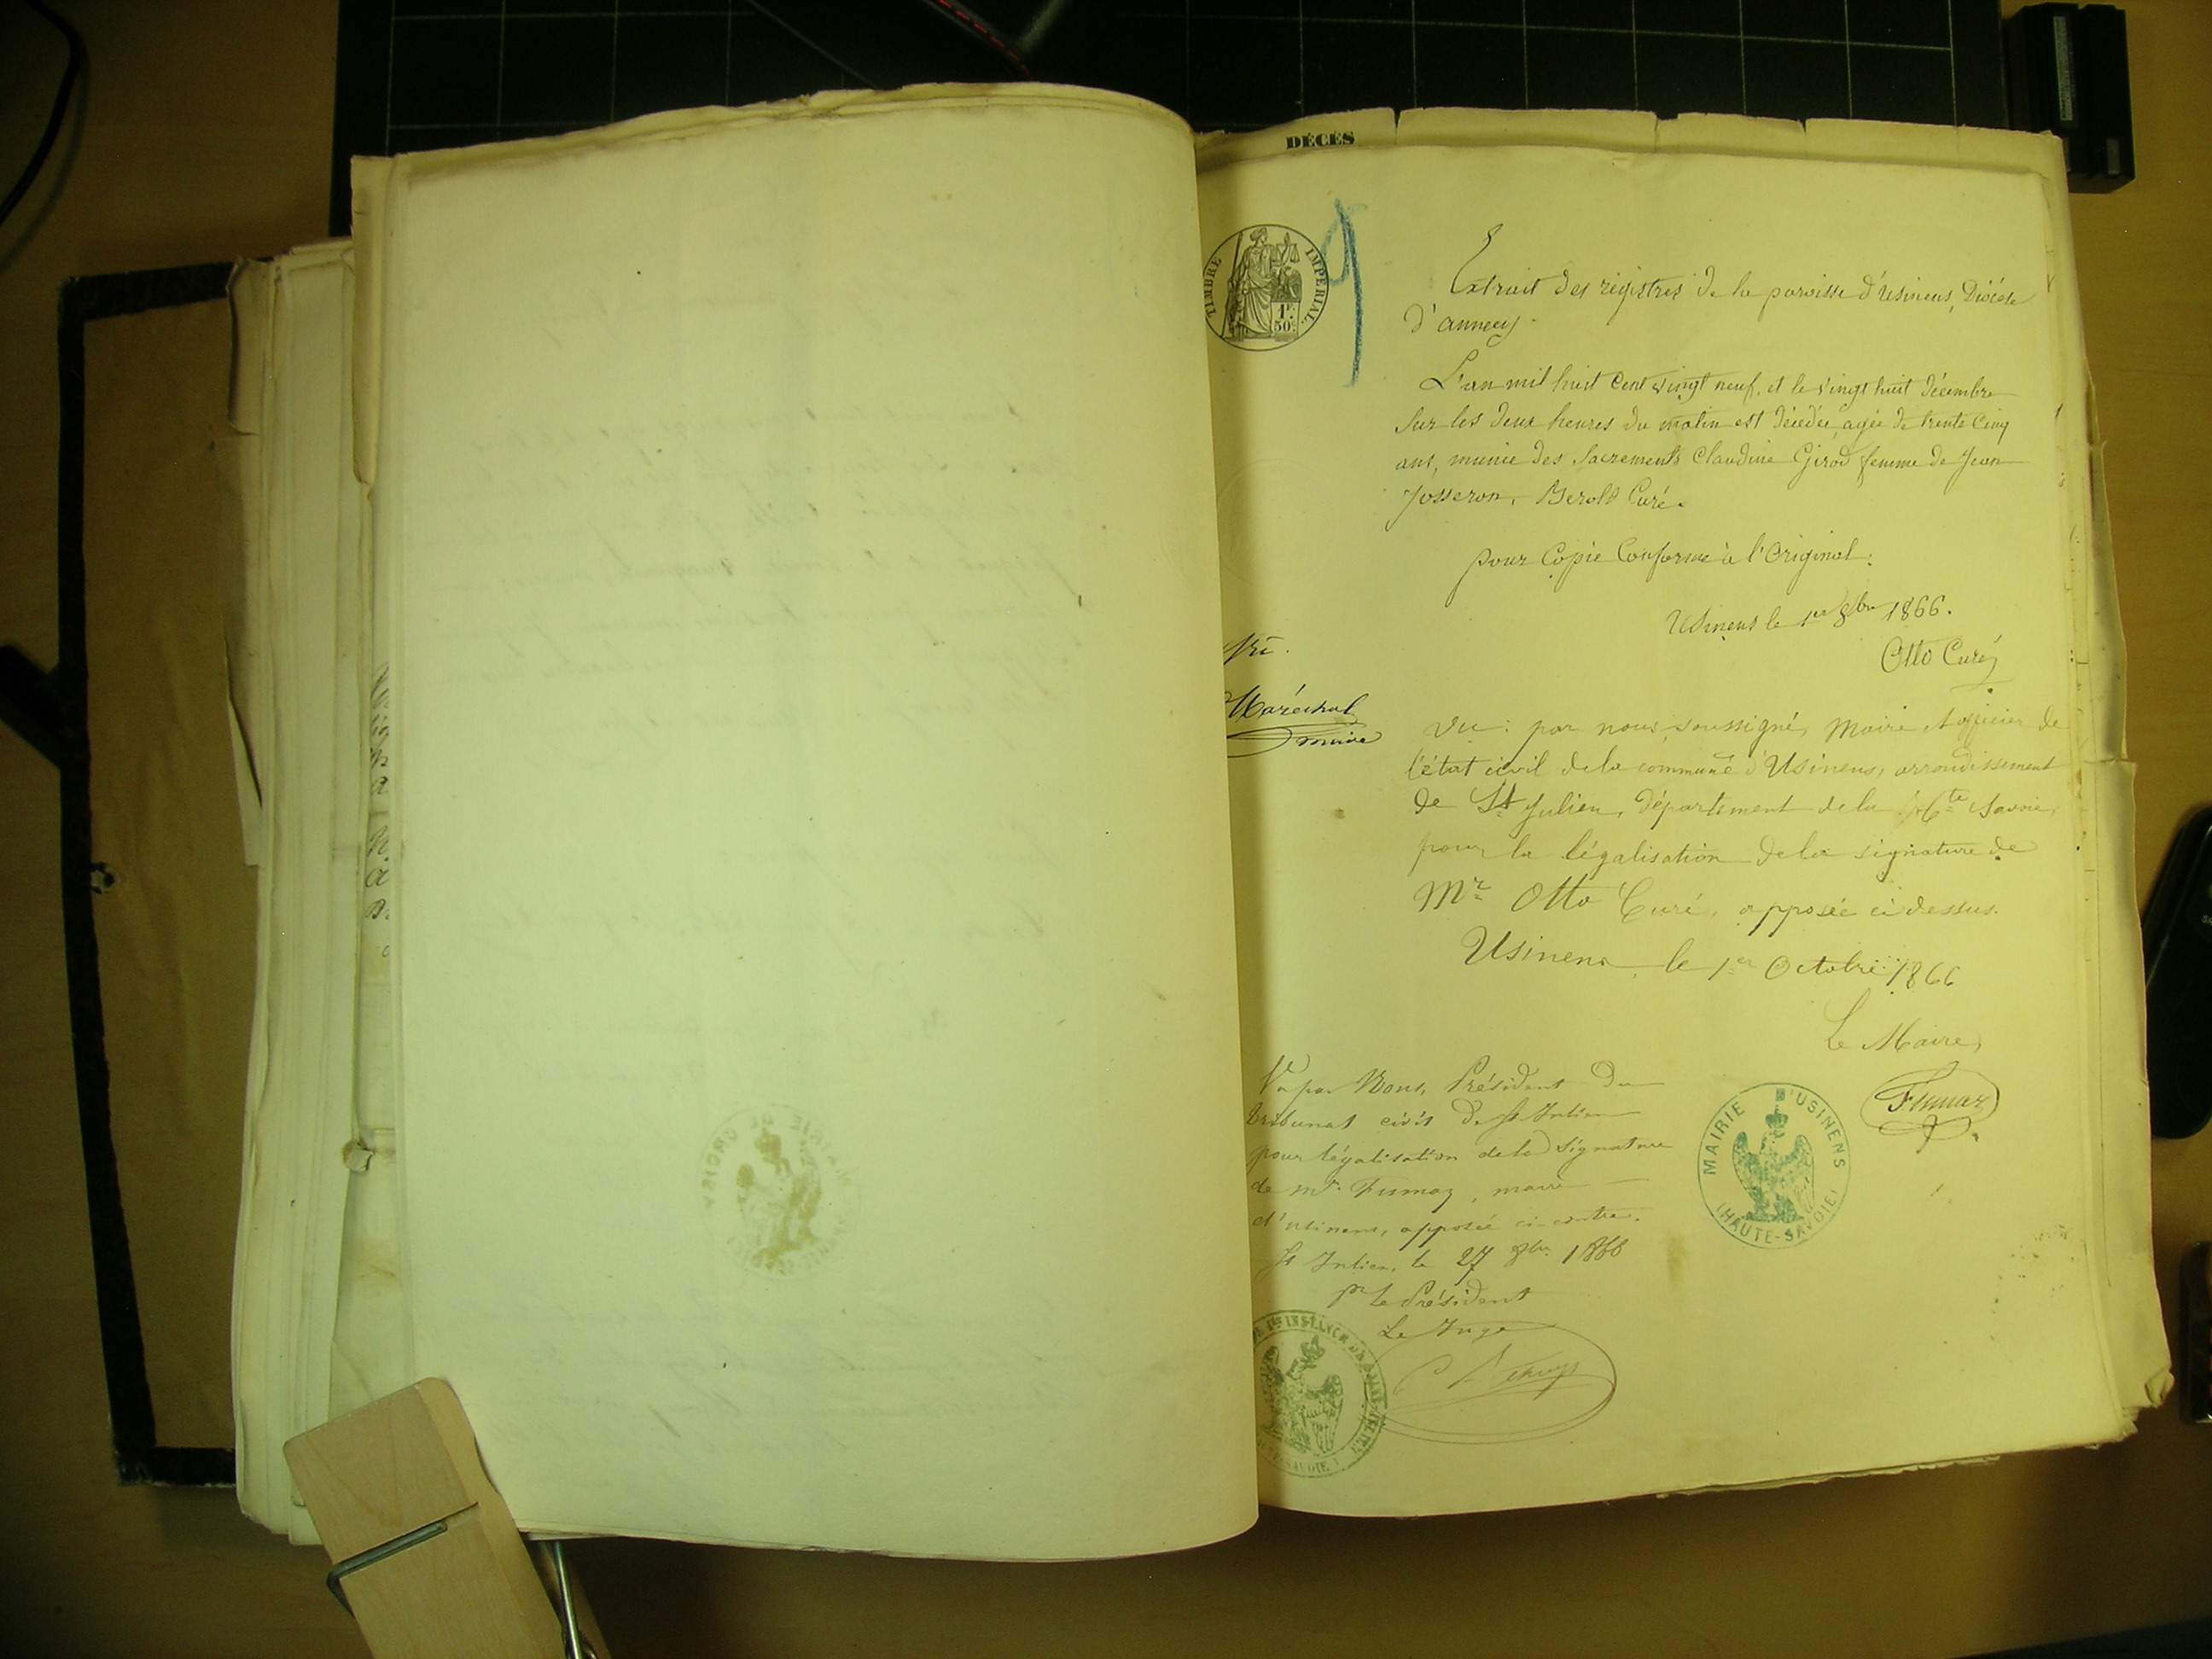 DÉCÈS
TIMBRE IMPÉRIAL
1F.
50c.
9
Extrait des régistres de la paroisse d'Usinens, Diocèse
d'annecy.
L'an mil huit cent vingt neuf, et le vingt huit Décembre
sur les deux heures du matin est décédée, agée de trente cinq
ans, munie des Sacrements Claudine Girod femme de Jean
Josseron. Berold Curé.
pour Copie Conforme à l'Original.
Usinens le 1er 8bre 1866.
Otto Curé
Maréchal
Vu : par nous soussigné, Maire et officier de
l'état civil de la commune d'Usinens, arrondissement
de St Julien, département de la Hte Savoie,
pour la légalisation de la signature de
Mr Otto Curé, apposée ci dessus.
Usinens, le 1er Octobre 1866
Le Maire,
Fumaz
MAIRIE D'USINENS
(HAUTE-SAVOIE)
Vu par Nous, Président du
tribunal civil de St Julien
pour légalisation de la signature
de mr. Fumaz, maire
d'usinens, apposée ci-contre.
St Julien, le 27 8bre 1866
pr le Président
Le Juge